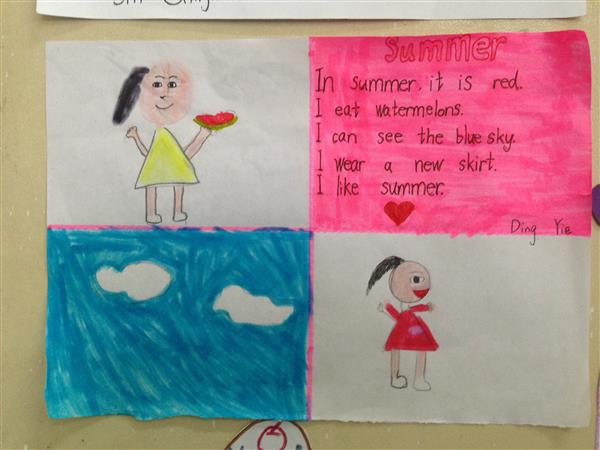 Summer
In summer. it is red.
I eat watermelons.
I can see the blue sky.
I wear a new skirt.
I like summer.
Ding Yie